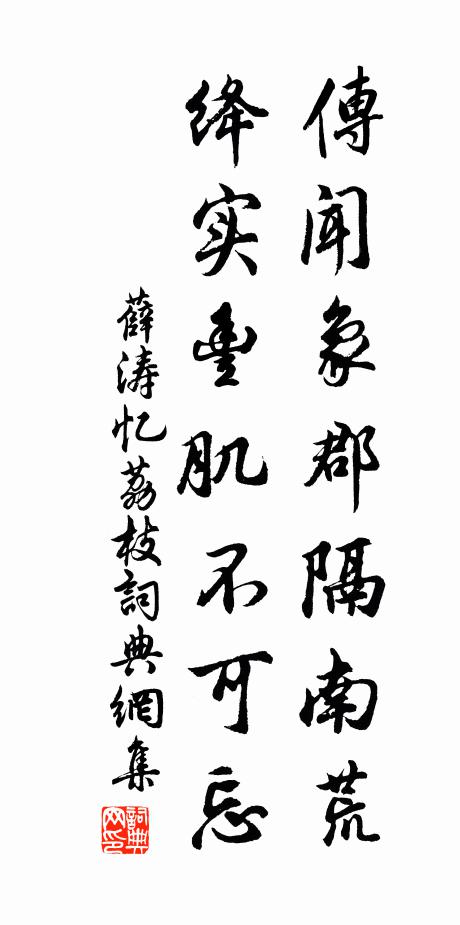 傳闻象郡隔南荒
绛实豊肌不可忘
薛涛忆荔枝詞典網集
詞典網印